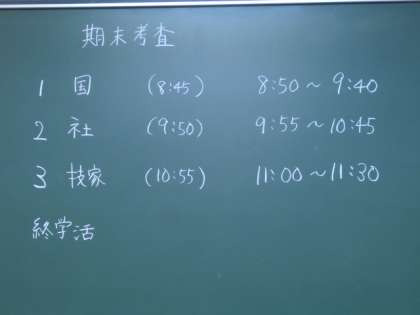 期末考査
1 国 (8:45) 8:50〜9:40
2 社 (9:50) 9:55〜10:45
3 技家 (10:55) 11:00〜11:30
終学活